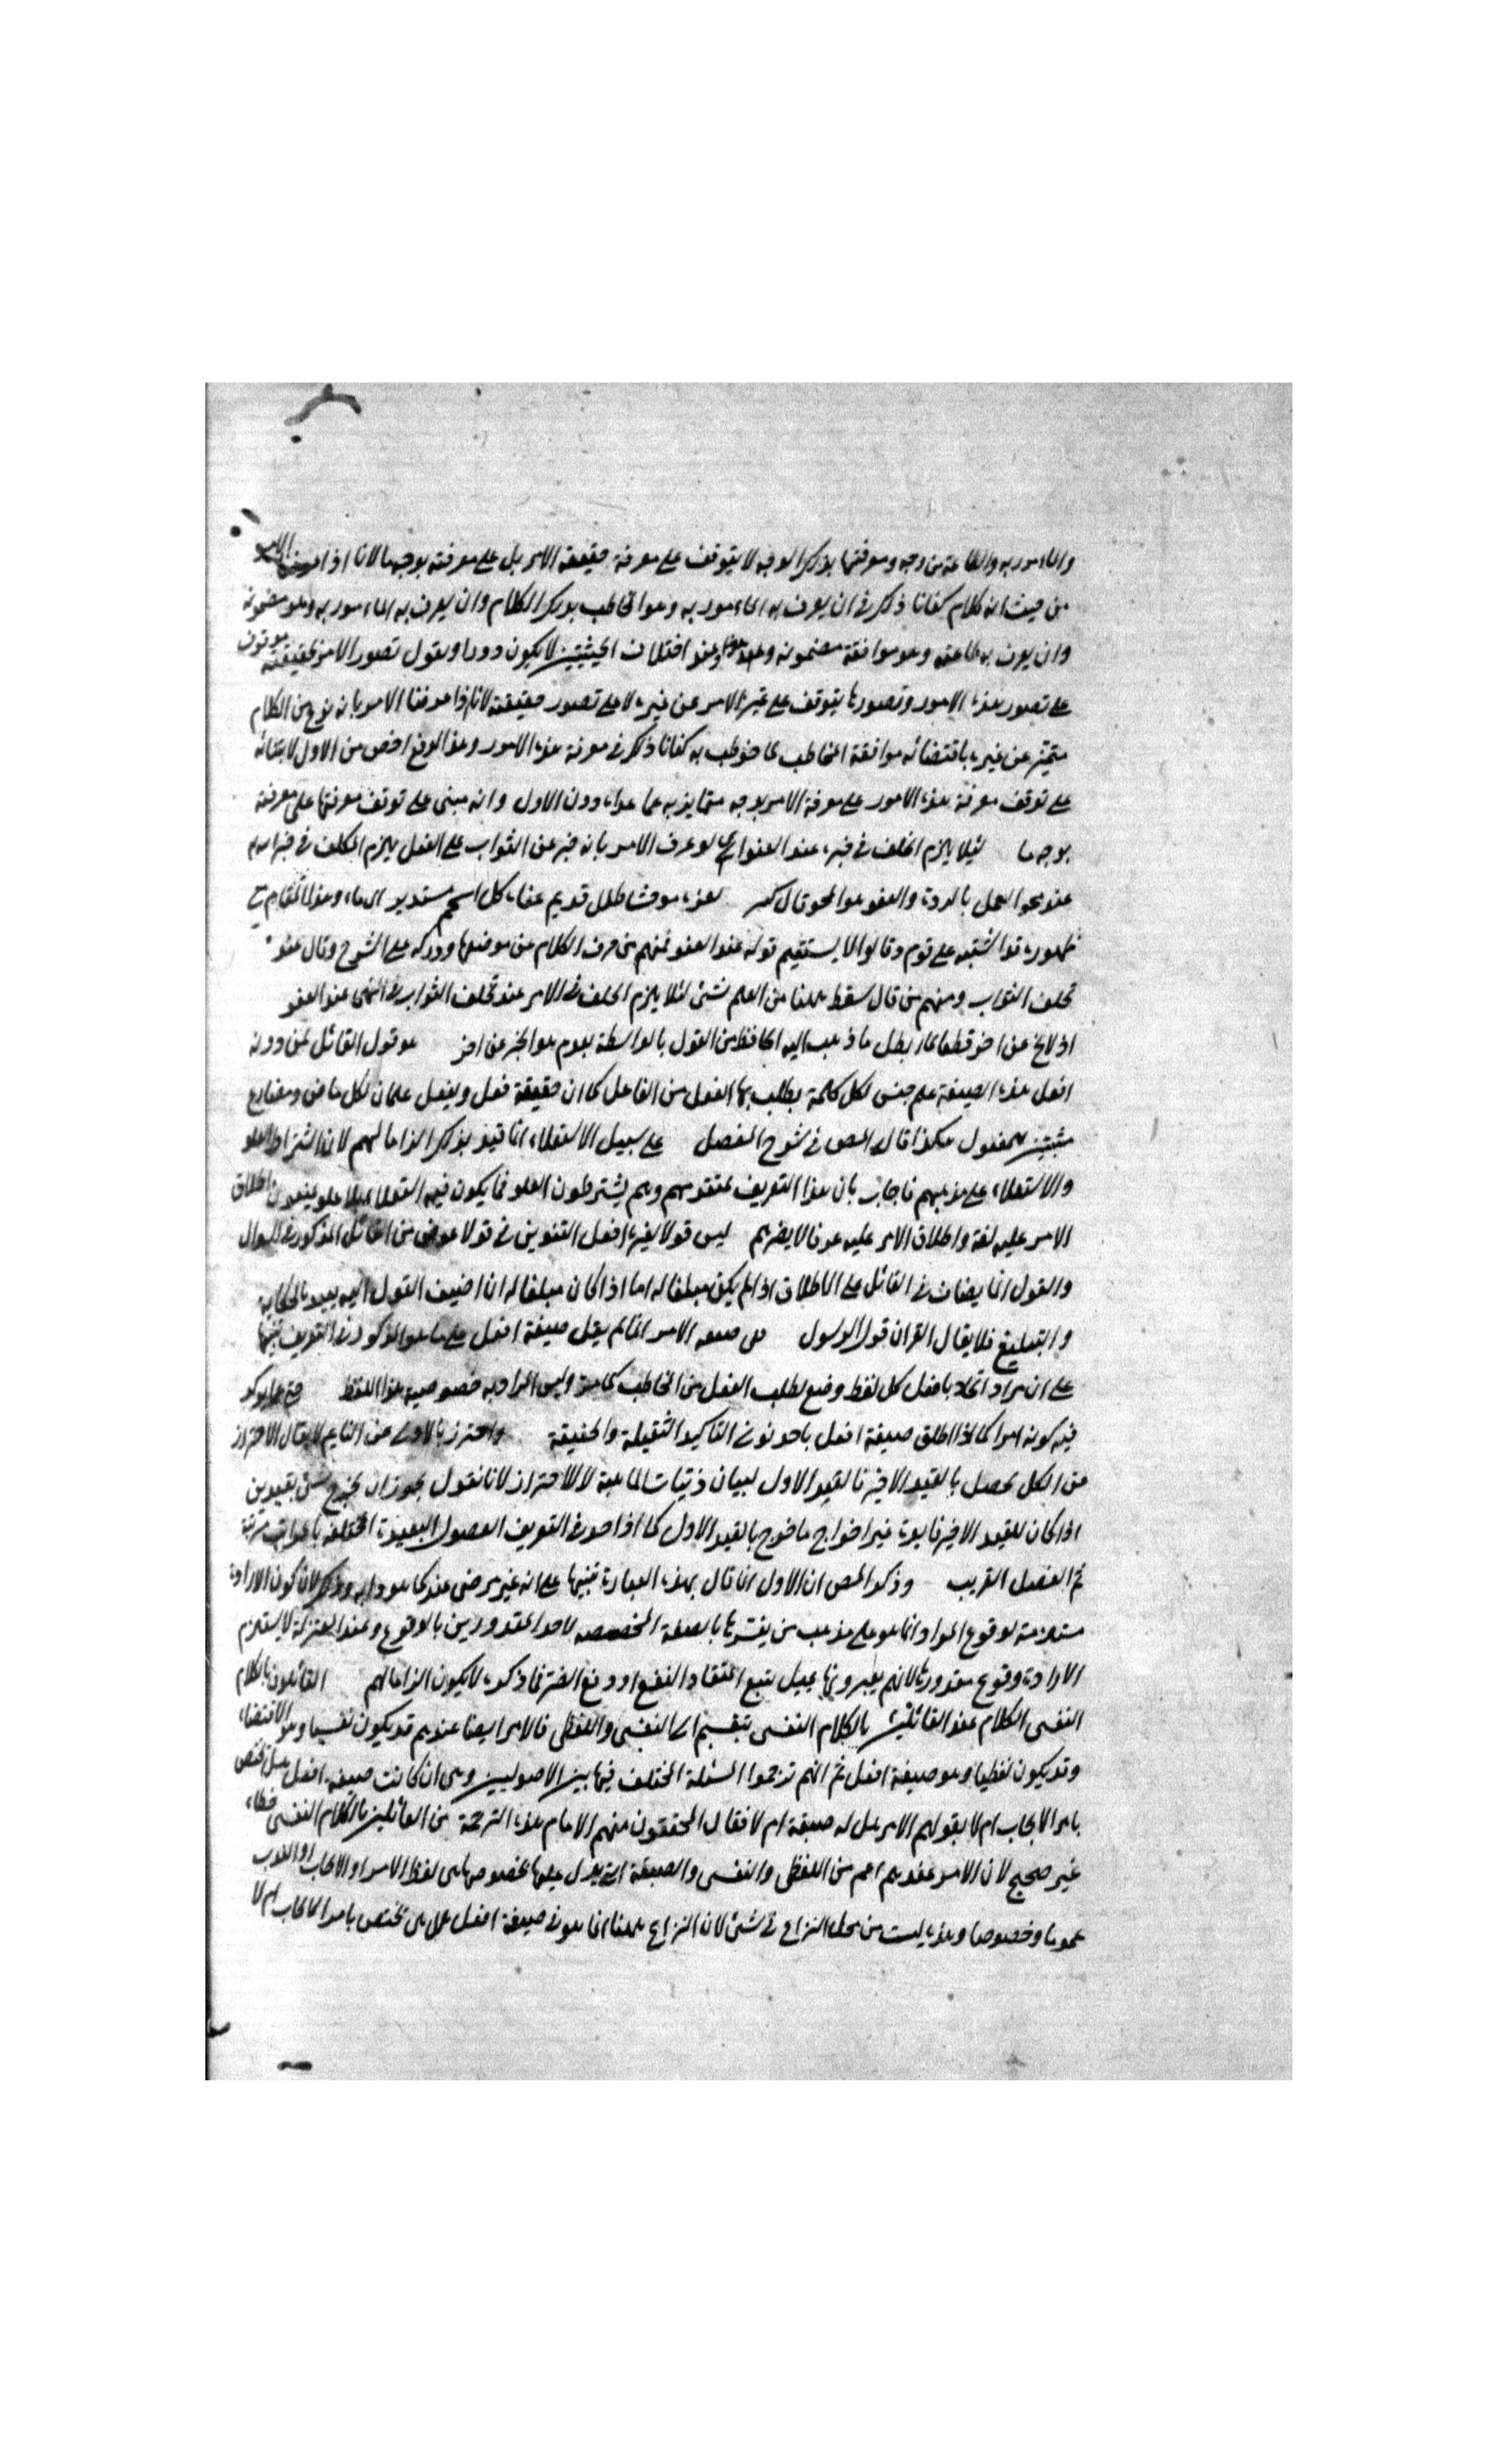 والمأمور به والطاعة من وجه ومعرفتها بذلك الوجه لا يتوقف على معرفة حقيقة الامر بل على معرفته بوجه ما لانا اذا عرفنا الامر
من حيث انه كلام كفانا ذلك في ان يعرف به المأمور به وهو المخاطب بذلك الكلام وان يعرف به المأمور به وهو مضمونه
وان يعرف به طاعته وهو موافقة مضمونه وعند اختلاف الحيثيتين لا يكون دورا ونقول تصور الامر بحقيقته يتوقف
على تصور هذه الامور وتصورها يتوقف على تميز الامر عن غيره لا على تصور حقيقته لانا اذا عرفنا الامر بانه نوع من الكلام
متميز عن غيره باقتضائه موافقة المخاطب لما خوطب به كفانا ذلك في معرفة هذه الامور وهذا الدفع اخص من الاول لابتنائه
على توقف معرفة هذه الامور على معرفة الامر بوجه متمايز به عما عداه دون الاول وانه مبني على توقف معرفتها على معرفته
بوجه ما لئلا يلزم الخلف في خبره عند العفو اي لو عرف الامر بانه خبر عن الثواب على الفعل يلزم الخلف في خبر الله
عند محو العمل بالردة والعفو هو المحو قال لعزة موحشا طلل قديم عفاه كل اسحم مستديم اي محاه وهذا المقام مع
ظهوره قد اشتبه على قوم وقالوا لا يستقيم قوله عند العفو فمنهم من حرف الكلام عن موضعها وقال عند
تخلف الثواب ومنهم من قال سقط ههنا من القلم شئ لئلا يلزم الخلف في الامر عند تخلف الثواب وفي النهي عند العفو
هو قول القائل لمن دونه
افعل هذه الصيغة علم جنس لكل كلمة يطلب بها الفعل من الفاعل كما ان حقيقة فعل ويفعل علمان لكل ماض ومضارع
هكذا قال المص في شرح المفصل على سبيل الاستعلاء انما قيد بذلك الزاما لهم لان اشتراط العلو
والاستعلاء على مذهبهم فاجاب بان هذا التعريف عندهم وهم يشترطون العلو فما يكون فيه استعلاء بلا علو اطلاق
الامر عليه لغة واطلاق الامر عليه عرفا لا يضرهم ليس قولا لغيره افعل التنوين في قولا عوض من القائل المذكور في السؤال
والقول انما يضاف الى القائل على الاطلاق اذا لم يكن مبلغا له اما اذا كان مبلغا له ان اضيف القول اليه يقيد بالحكاية
والتبليغ فلا يقال القران قول الرسول صيغة الامر انما لم يقل صيغة افعل على ما هو المذكور في التعريف تنبيها
على ان مراد النحاة بافعل كل لفظ وضع لطلب الفعل من المخاطب كما مر وليس المراد به خصوصية هذا اللفظ
فيه كونه امرا كما اذا اطلق صيغة افعل باحد نوني التأكيد الثقيلة والخفيفة واحترز بالاولى عن النائم لا يقال الاحتراز
عن الكل يحصل بالقيد الاخير فالقيد الاول لبيان ذاتيات الماهية لا للاحتراز لانا نقول يجوز ان يخرج شئ بقيدين
اذا كان للقيد الاخير فائدة غير اخراج ما خرج بالقيد الاول كما اذا اخذ في التعريف الفصول البعيدة المختلفة بمراتب مرتبة
ثم الفصل القريب وذكر المص ان الاول انما قال بهذه العبارة تنبيها على انه غير مرضي عنده كما هو دأبه وذلك لان كون الارادة
مستلزمة لوقوع المراد انما هو على مذهب من يفسرها بالصفة المخصصة لاحد المقدورين بالوقوع وعند المعتزلة لا يستلزم
الارادة وقوع مقدورها لانهم يفسرونها بميل يتبع اعتقاد النفع او دفع الضر فما ذكره لا يكون الزاما لهم القائلون بالكلام
النفسي الكلام عند القائلين بالكلام النفسي ينقسم الى النفسي واللفظي فالامر ايضا عندهم قد يكون نفسيا وهو الاقتضاء
وقد يكون لفظيا وهو صيغة افعل ثم انهم ترجموا المسئلة المختلف فيها بين الاصوليين وهي ان كانت صيغة افعل هل تختص
بامر الايجاب ام لا بقولهم الامر هل له صيغة ام لا فقال المحققون منهم الامام هذه الترجمة من القائلين بالكلام النفسي خطاء
غير صحيح لان الامر عندهم اعم من اللفظي والنفسي والصيغة التي يدل عليها بخصوصها هي لفظ الامر او الايجاب او الندب
عموما وخصوصا وهذه ليست من محل النزاع في شئ لان النزاع ههنا انما هو في صيغة افعل هل هي تختص بامر الايجاب ام لا